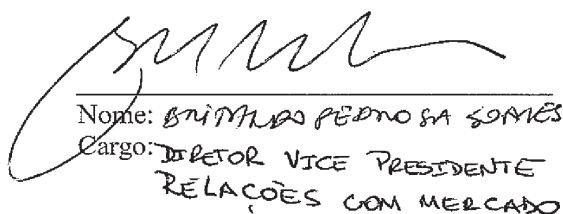 Nome: BRITALDO PEDROSA SOARES
Cargo: DIRETOR VICE PRESIDENTE
RELAÇÕES COM MERCADO